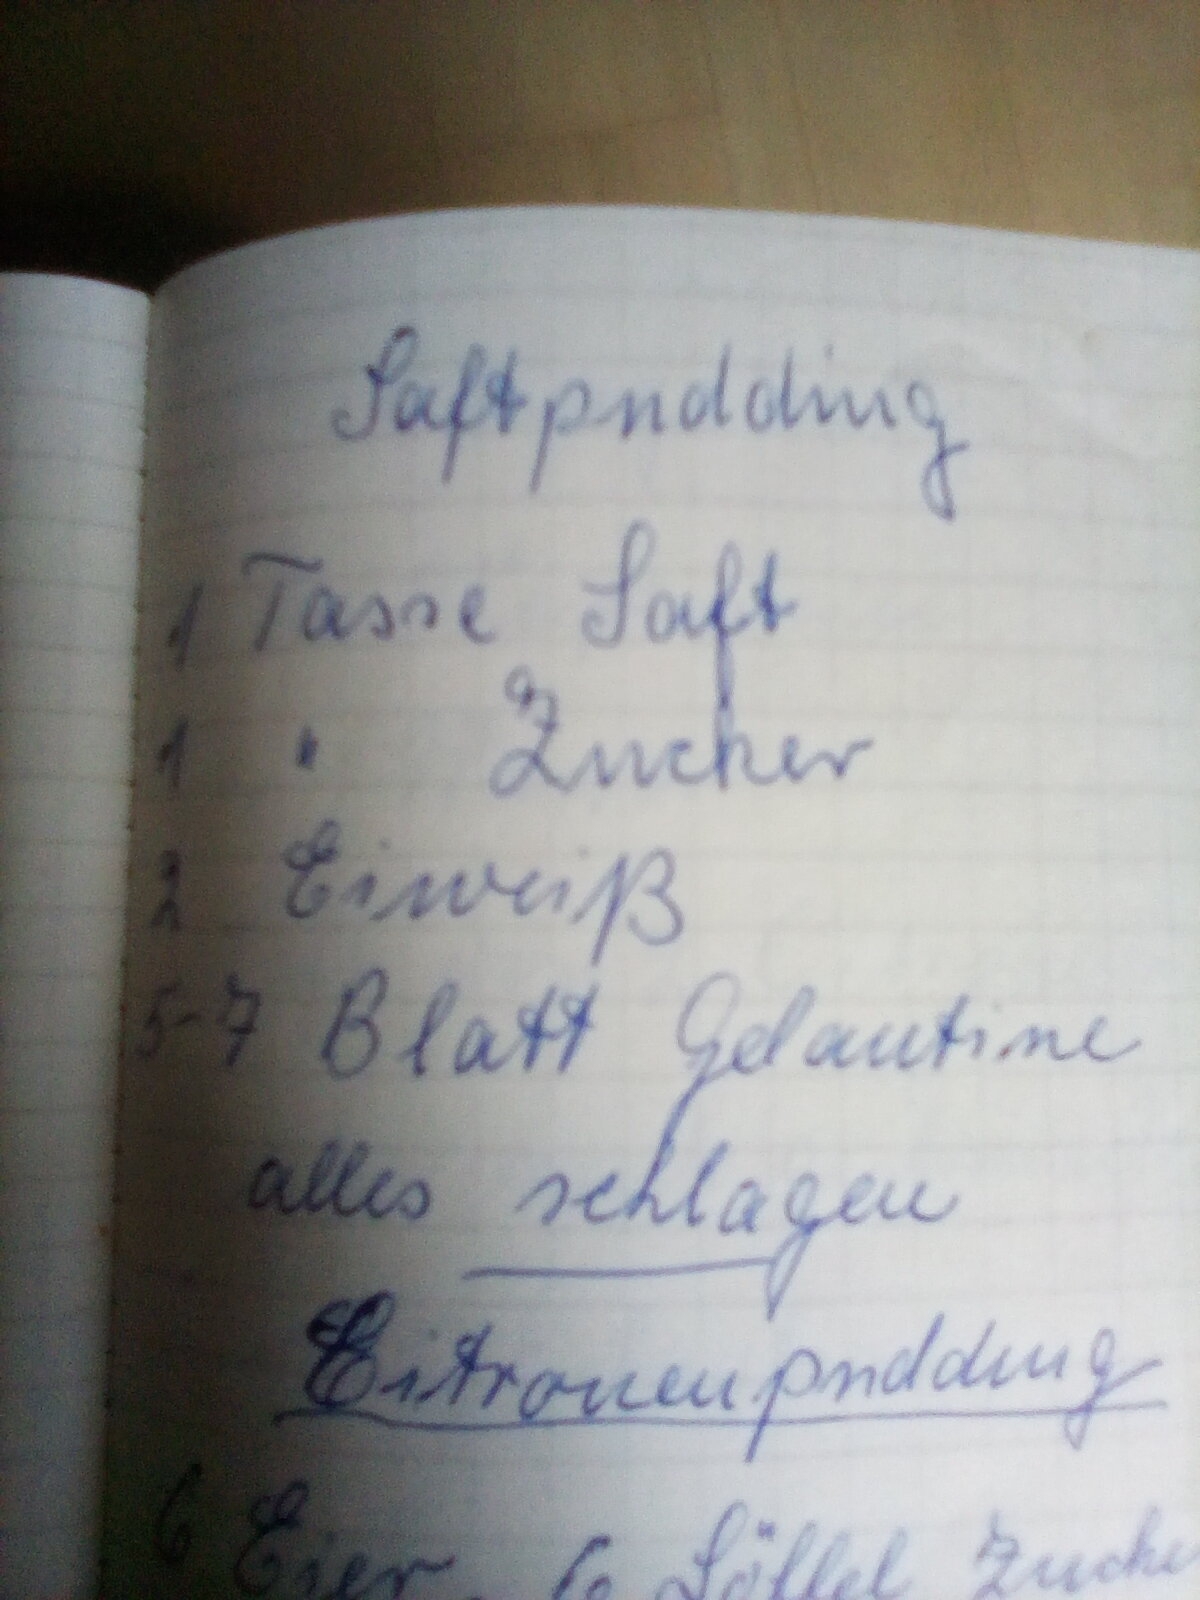 Saftpudding
1 Tasse Saft
1 " Zucker
2 Eiweiß
5-7 Blatt Gelantine
alles schlagen
Citronenpudding
6 Eier, 6 Löffel Zucker